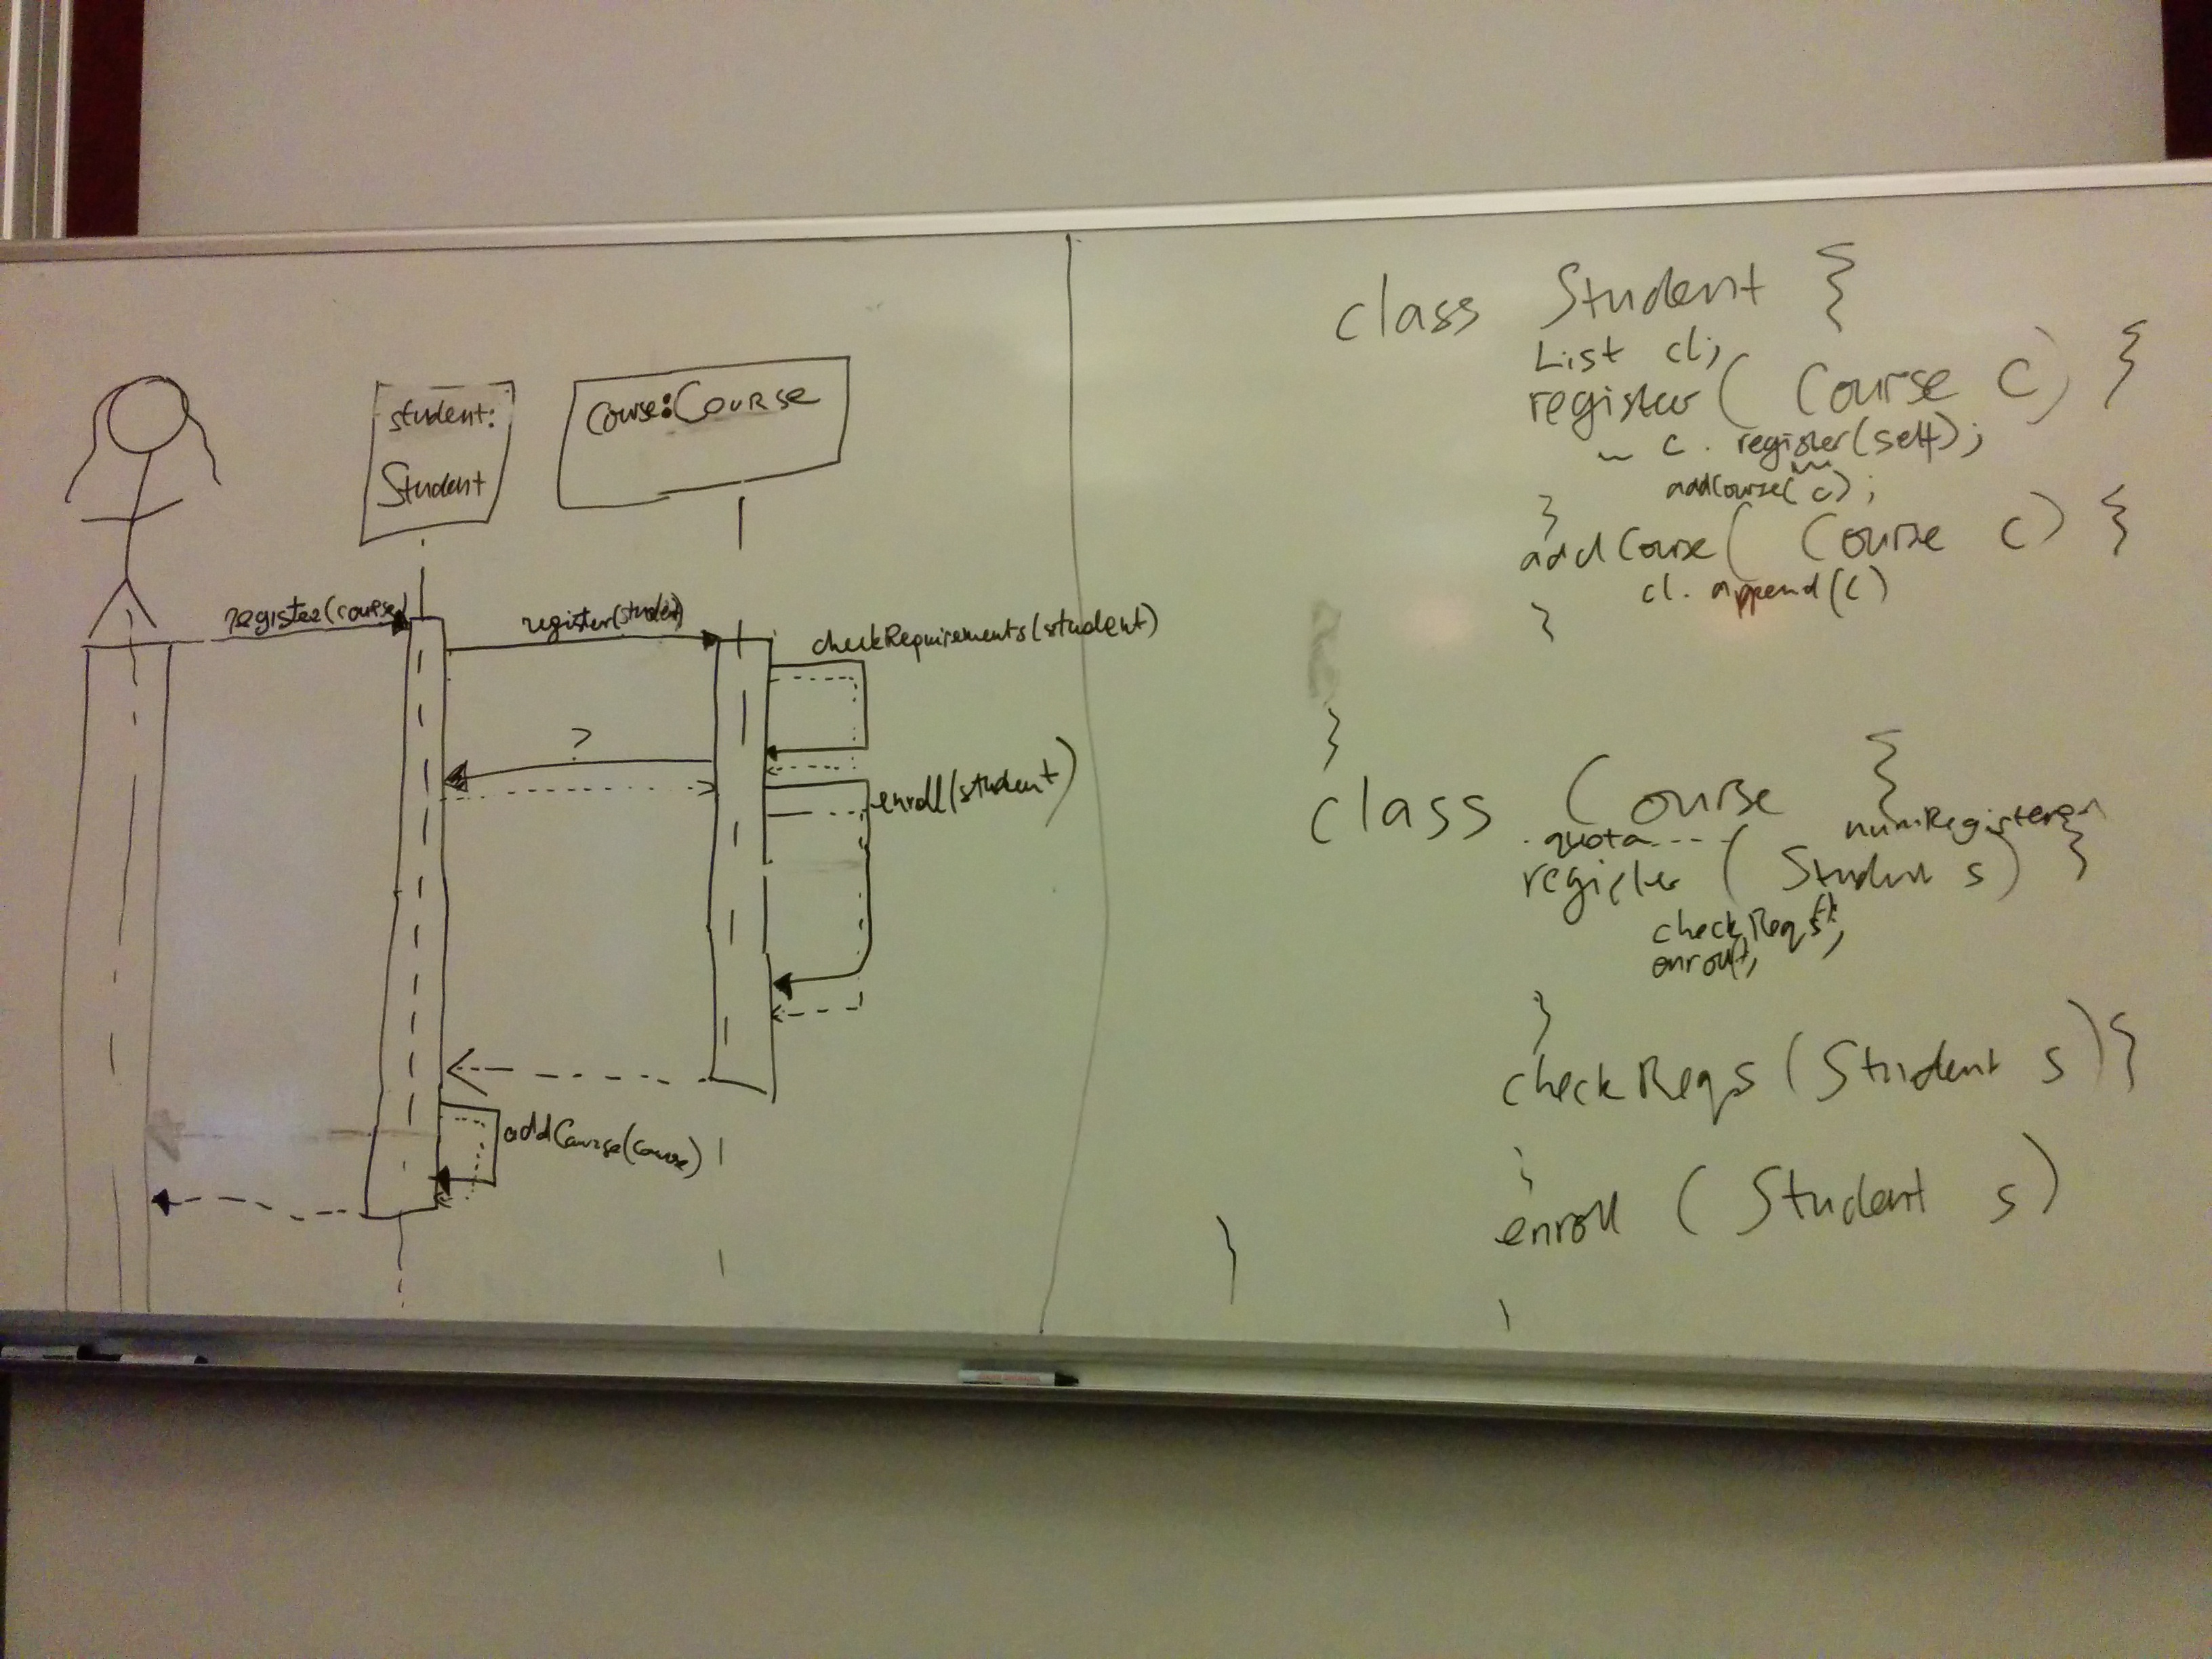 student:
Student
Course:Course
register(course)
register(student)
checkRequirements(student)
?
enroll(student)
addCourse(course)
class Student {
List cl;
register( Course c) {
c. register(self);
addCourse(c);
}
addCourse( Course c) {
cl. append(c)
}
}
class Course {
quota---- numRegistered
register ( Student s) {
checkReqs();
enroll();
}
checkReqs (Student s){
}
enroll ( Student s)
}
}